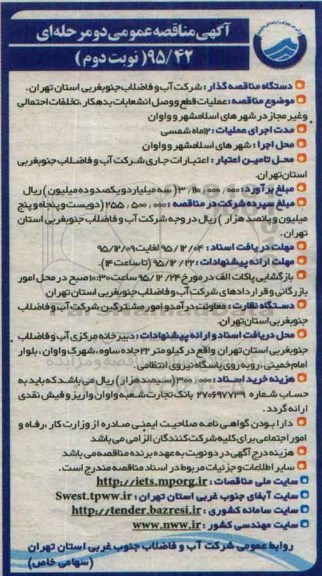 آگهی مناقصه عمومی دو مرحله‌ای
۹۵/۴۲ (نوبت دوم)
دستگاه مناقصه گذار : شرکت آب و فاضلاب جنوبغربی استان تهران.
موضوع مناقصه : عملیات قطع و وصل انشعابات بدهکار ، تخلفات احتمالی
وغیر مجاز در شهر های اسلامشهر و واوان
مدت اجرای عملیات : ۱۲ماه شمسی
محل اجرا : شهر های اسلامشهر و واوان
محل تامین اعتبار : اعتبارات جاری شرکت آب و فاضلاب جنوبغربی
استان تهران.
مبلغ برآورد : ۳/۱۱۰/۰۰۰/۰۰۰ ( سه میلیارد و یکصدو ده میلیون ) ریال
مبلغ سپرده شرکت در مناقصه : ۲۵۵/۵۰۰/۰۰۰ (دویست و پنجاه و پنج
میلیون و پانصد هزار ) ریال در وجه شرکت آب و فاضلاب جنوبغربی استان
تهران.
مهلت دریافت اسناد : ۹۵/۱۲/۰۴ لغایت ۹۵/۱۲/۰۹
مهلت ارائه پیشنهادات : ۹۵/۱۲/۲۲ (تا ساعت ۱۴).
بازگشایی پاکات الف در مورخ ۹۵/۱۲/۲۴ ساعت ۱۰:۳۰ صبح در محل امور
بازرگانی و قراردادهای شرکت آب و فاضلاب جنوبغربی استان تهران
دستگاه نظارت : معاونت درآمد و امور مشترکین شرکت آب و فاضلاب
جنوبغربی استان تهران.
محل دریافت اسناد و ارائه پیشنهادات : دبیرخانه مرکزی آب و فاضلاب
جنوبغربی استان تهران واقع در کیلومتر ۲۲ جاده ساوه ، شهرک واوان ، بلوار
امام خمینی ، روبه روی پاسگاه نیروی انتظامی.
هزینه خرید اسناد : ۳۰۰/۰۰۰ (سیصد هزار) ریال می باشد که باید به
حساب شماره ۲۷۰۶۹۷۷۳۹ بانک تجارت شعبه واوان واریز و فیش نقدی
ارائه گردد.
دارا بودن گواهی نامه صلاحیت ایمنی صادره از وزارت کار ، رفاه و
امور اجتماعی برای کلیه شرکت کنندگان الزامی می باشد
هزینه درج آگهی در دو نوبت به عهده برنده مناقصه می باشد
سایر اطلاعات و جزئیات مربوط در اسناد مناقصه مندرج است.
سایت ملی مناقصات : http://iets.mporg.ir
سایت آبفای جنوب غربی استان تهران : Swest.tpww.ir
سایت سامانه کشوری : http://tender.bazresi.ir
سایت مهندسی کشور : www.nww.ir
روابط عمومی شرکت آب و فاضلاب جنوب غربی استان تهران
(سهامی خاص)